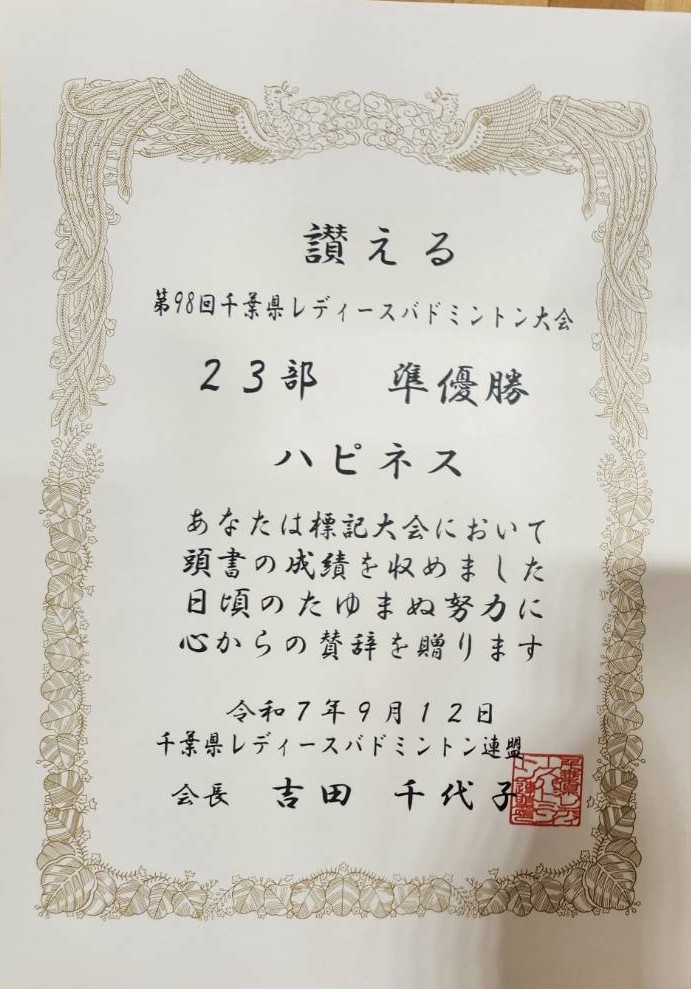 讃える
第98回千葉県レディースバドミントン大会
２３部 準優勝
ハピネス
あなたは標記大会において
頭書の成績を収めました
日頃のたゆまぬ努力に
心からの賛辞を贈ります
令和７年９月１２日
千葉県レディースバドミントン連盟
会長 吉田 千代子